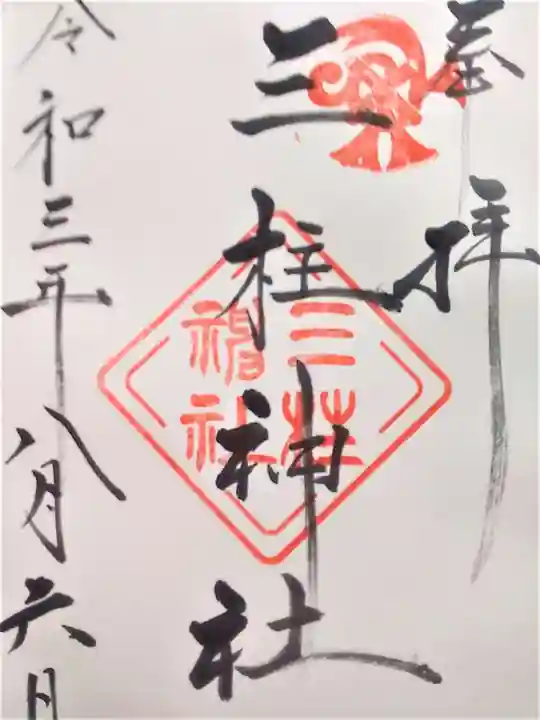 奉拝
三柱神社
三柱
神社
令和三年八月六日